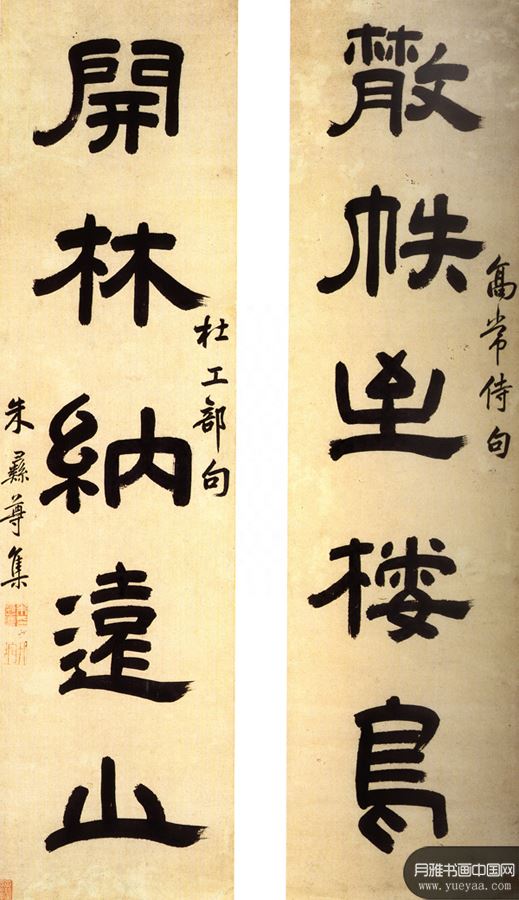 散帙至棲鳥
高常侍句
開林納遠山
杜工部句
朱彝尊集
月雅书画中国网
www.yueyaa.com